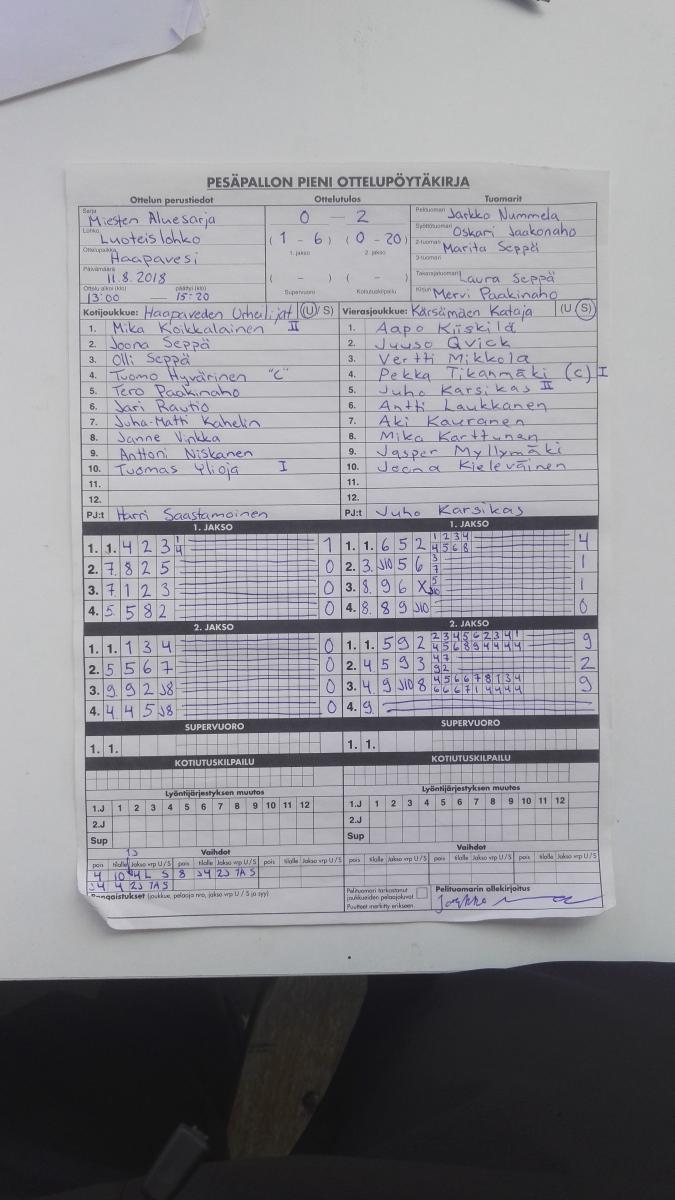 PESÄPALLON PIENI OTTELUPÖYTÄKIRJA
Ottelun perustiedot Ottelutulos Tuomarit
Sarja Miesten Aluesarja 0 - 2 Pelituomari Jarkko Nummela
Lohko Luoteislohko (1 - 6) (0 - 20) Syöttötuomari Oskari Jaakonaho
1. jakso 2. jakso 2-tuomari Marita Seppä
Ottelupaikka Haapavesi 3-tuomari
Päivämäärä 11.8.2018 ( - ) ( - ) Takarajatuomari Laura Seppä
Ottelu alkoi (klo) päättyi (klo) Supervuoro Kotiutuskilpailu Kirjuri Mervi Paakinaho
13:00 — 15:20
Kotijoukkue: Haapaveden Urheilijat (U/S) Vierasjoukkue: Kärsämäen Kataja (U/S)
1. Mika Koikkalainen II 1. Aapo Kiiskilä
2. Joona Seppä 2. Juuso Qvick
3. Olli Seppä 3. Vertti Mikkola
4. Tuomo Hyvärinen "C" 4. Pekka Tikanmäki (c) I
5. Tero Paakinaho 5. Juho Karsikas II
6. Jari Rautio 6. Antti Laukkanen
7. Juha-Matti Kahelin 7. Aki Kauranen
8. Janne Vinkka 8. Mika Karttunen
9. Anttoni Niskanen 9. Jasper Myllymäki
10. Tuomas Ylioja I 10. Joona Kieleväinen
11. 11.
12. 12.
PJ:t Harri Saastamoinen PJ:t Juho Karsikas
1. JAKSO 1. JAKSO
1. 1. 4 2 3 1 1. 1. 6 5 2 1 2 3 4 4
4 5 6 8
2. 7 8 2 5 0 2. 3 J10 5 6 3 1
7
3. 7 1 2 3 0 3. 8 9 6 X 5 1
J10
4. 5 5 8 2 0 4. 8 8 9 J10 0
2. JAKSO 2. JAKSO
1. 1. 1 3 4 0 1. 1. 5 9 2 2 3 4 5 6 2 3 4 1 9
4 5 6 8 9 4 4 4 4
2. 5 5 6 7 0 2. 4 5 9 3 4 7 2
9 2
3. 9 9 2 J8 0 3. 4 9 J10 8 4 5 6 6 7 8 1 3 4 9
6 6 6 7 1 4 4 4 4
4. 4 4 5 J8 0 4. 9
SUPERVUORO SUPERVUORO
1. 1. 1. 1.
KOTIUTUSKILPAILU KOTIUTUSKILPAILU
Lyöntijärjestyksen muutos Lyöntijärjestyksen muutos
1.J 1 2 3 4 5 6 7 8 9 10 11 12 1.J 1 2 3 4 5 6 7 8 9 10 11 12
2.J 2.J
Sup Sup
Vaihdot Vaihdot
pois tilalle Jakso vrp U/S pois tilalle Jakso vrp U/S pois tilalle Jakso vrp U/S pois tilalle Jakso vrp U/S
4 10 4L S 8 J4 2J 7A S
J4 4 2J 7A S
Rangaistukset (joukkue, pelaaja nro, jakso vrp U / S ja syy) Pelituomari tarkastanut Pelituomarin allekirjoitus
joukkueiden pelaajaluvat
Puutteet merkitty erikseen. Jarkko